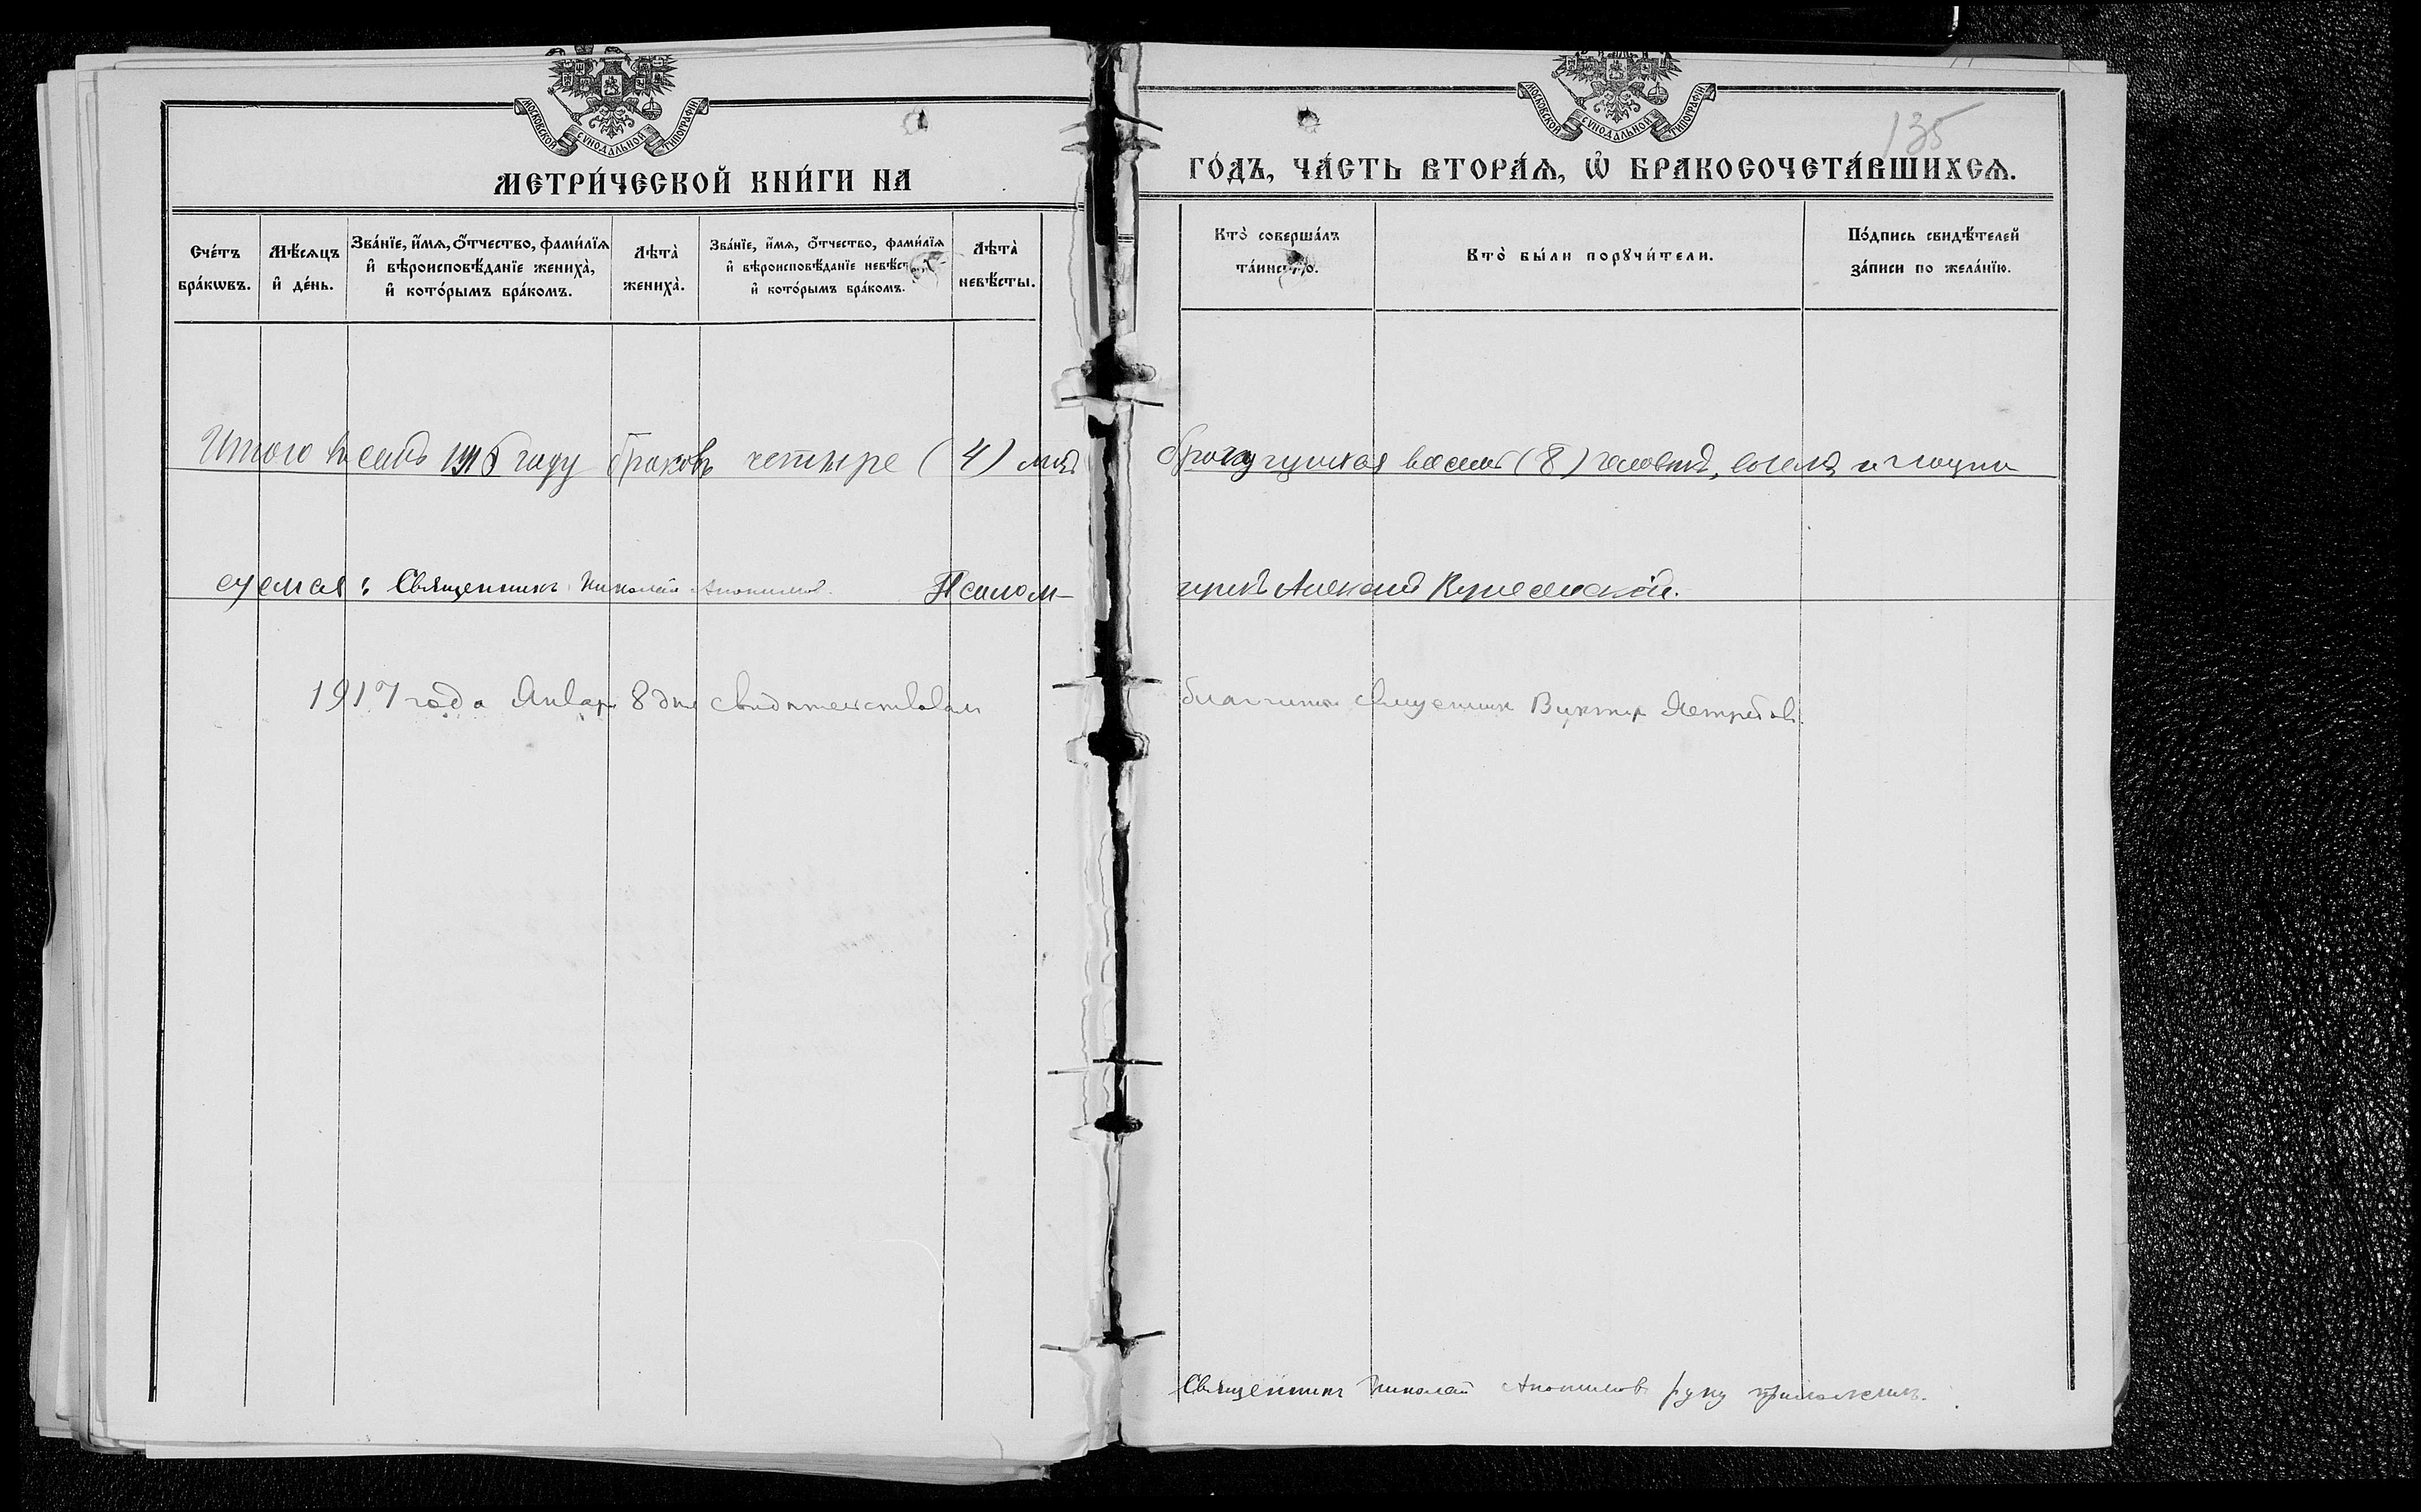 МОСКОВСКОЙ СѴНОДАЛЬНОЙ ТИПОГРАФІИ
МЕТРИ́ЧЕСКОЙ КНИ́ГИ НА
Сче́тъ бра́кѡвъ.
Мѣ́сѧцъ и҆ де́нь.
Зва́нїе, и҆́мѧ, ѻ҆́тчество, фами́лїѧ
и҆ вѣроисповѣ́данїе жениха̀,
и҆ кото́рымъ бра́комъ.
Лѣта̀ жениха̀.
Зва́нїе, и҆́мѧ, ѻ҆́тчество, фами́лїѧ
и҆ вѣроисповѣ́данїе невѣ́ст
и҆ кото́рымъ бра́комъ.
Лѣта̀ невѣ́сты.
Итого въ семъ 1916 году браковъ четыре (4)
Священникъ Николай
Псалом-
1917 года Января 8 дня свидетельствовал
МОСКОВСКОЙ СѴНОДАЛЬНОЙ ТИПОГРАФІИ
135
ГО́ДЪ, ЧА́СТЬ ВТОРА́Ѧ, Ѽ БРАКОСОЧЕТА́ВШИХСѦ.
Кто̀ соверша́лъ
та́инство.
Кто̀ бы́ли порꙋчи́тели.
По́дпись свидѣ́телей
за́писи по жела́нїю.
(8)
Алексей
благочинный священник Виктор Ястребов.
Священникъ Николай руку приложилъ.